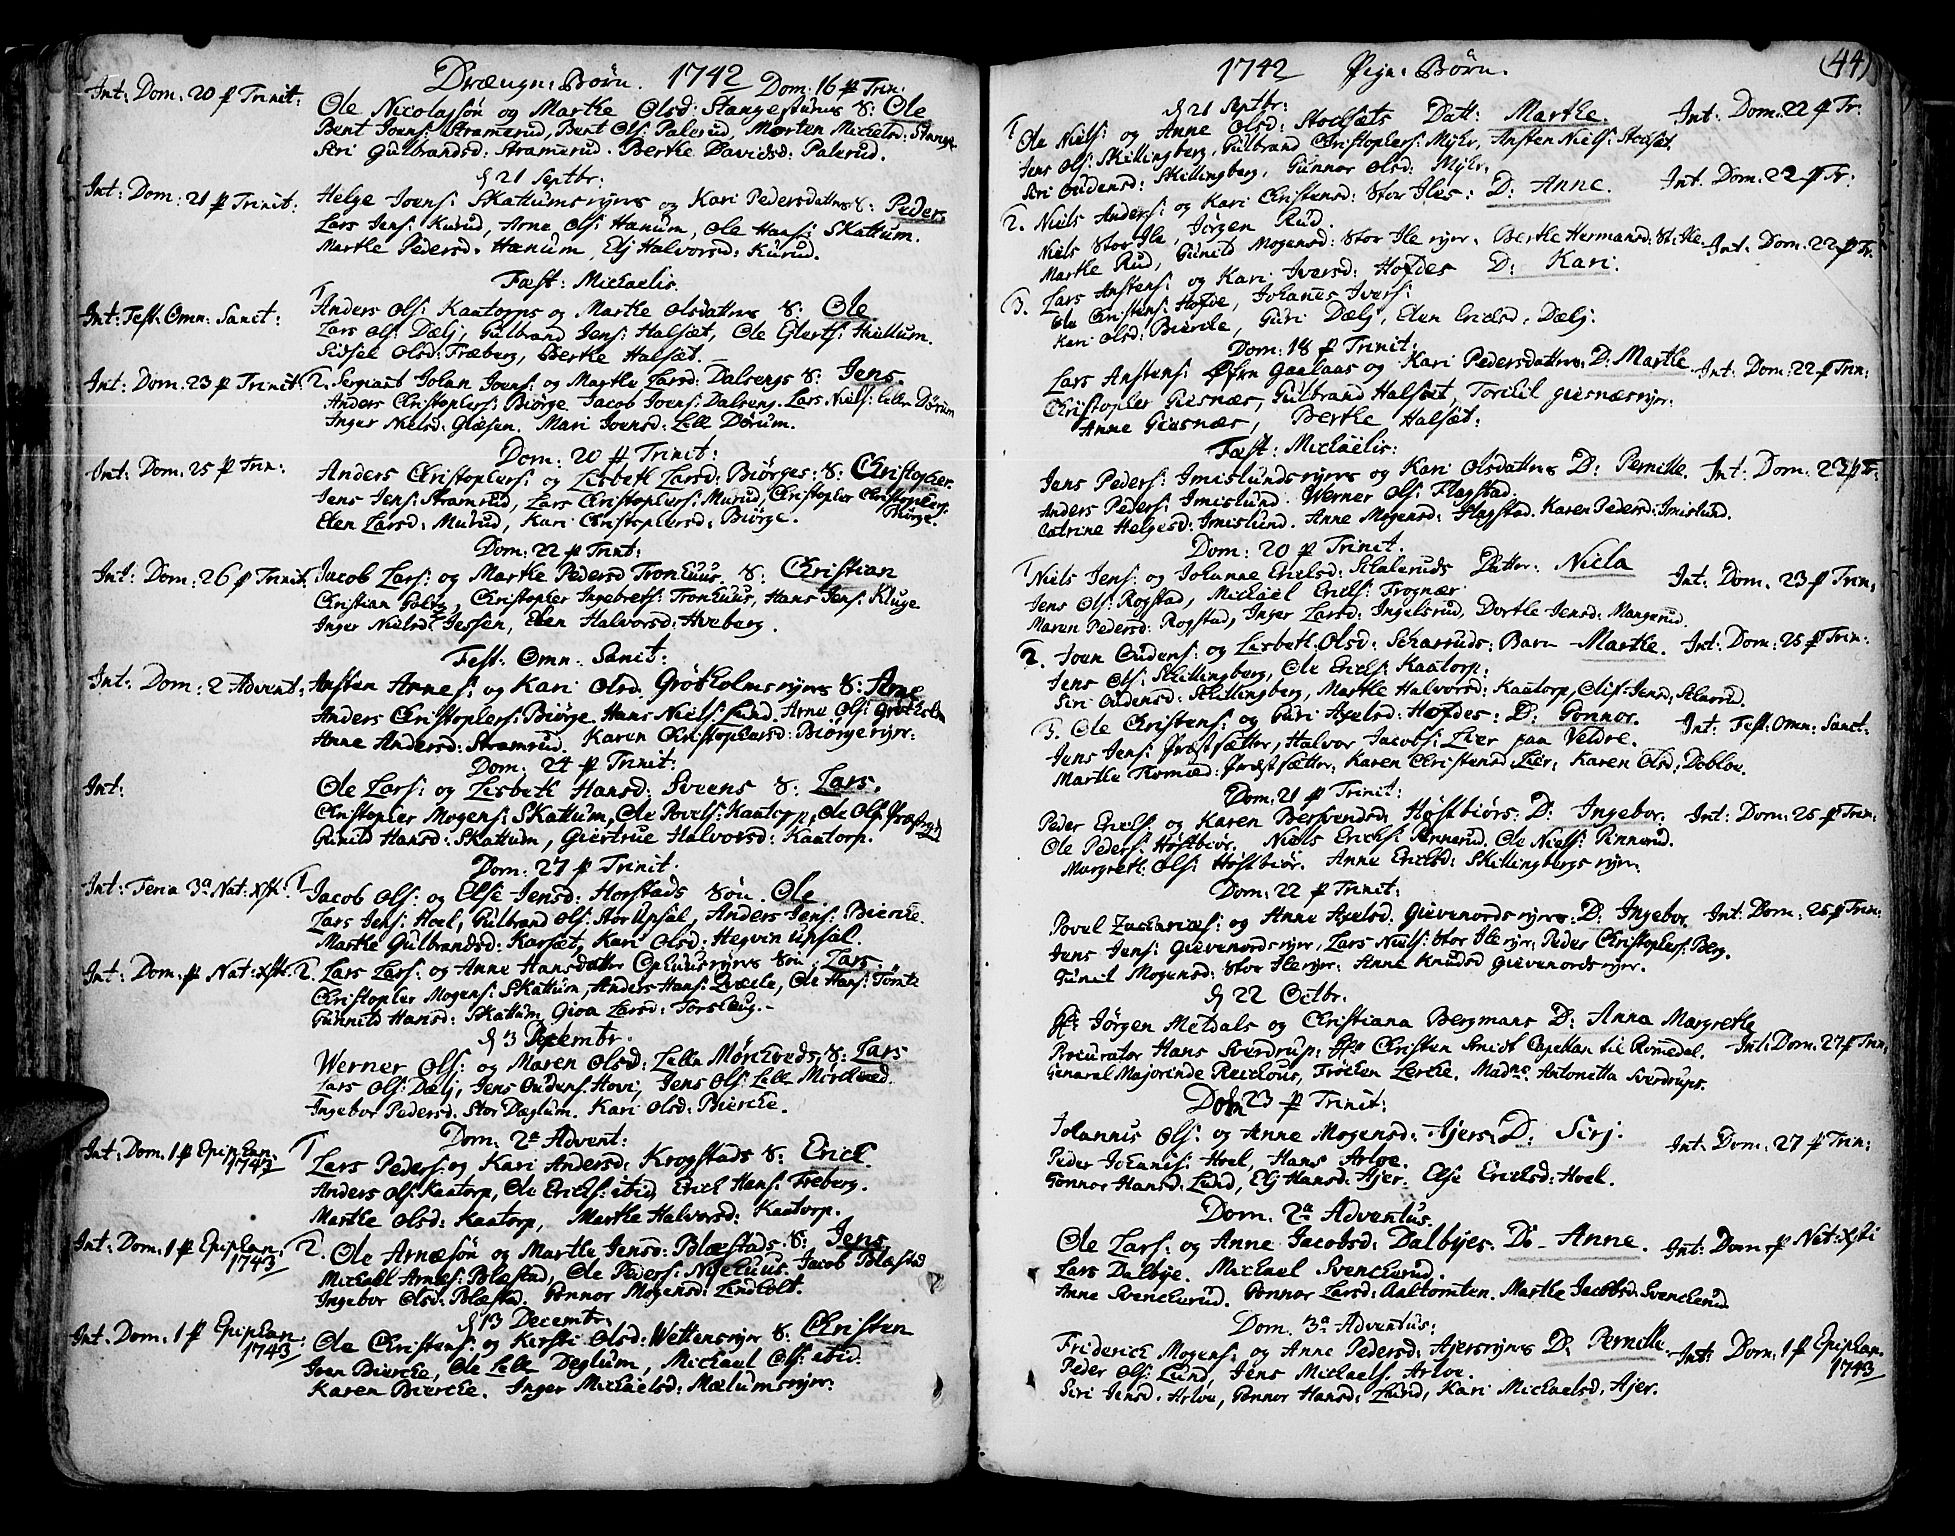 Drængn: Børn. 1742 Dom: 16 p Trin:
Int: Dom: 20 p Trinit:
Ole Nicolassön og Marthe Olsd: Stangestuens S: Ole
Bent Joens: Stramerud, Bent Ols: Palerud, Morten Michelsd: Stange
Siri Gulbrandsd: Stramerud. Berthe Davidsd: Palerud.
21 Septbr:
Int: Dom: 21 p Trinit:
Helge Joens: Skattumsejers og Kari Pedersdatters S: Peder
Lars Jens: Kurud, Arne Ols: Hænum, Ole Hans: Skattum.
Marthe Pedersd. Hænum, Elj Halvorsd: Kurud.
Fæst: Michaelis.
Int: Fest: Omn: Sanct:
1 Anders Ols: Kaatorps og Marthe Olsdatters S: Ole
Lars Ols: Dælj, Gulbrand Jens: Halsæt, Ole Eilerts: Thullum.
Sidsel Olsd: Fræberg, Berthe Halsæt.
Int: Dom: 23 p Trinit:
2. Sergiant Johan Joens: og Marthe Larsd: Dalsengs S: Jens.
Anders Christophers: Biørge Jacob Joens: Dalseng. Lars Niels: lille Dørum
Inger Nielsd: Giæsen. Mari Joensd: Lille Dørum.
Dom: 20 p Trinit:
Int: Dom: 25 p Trin:
Anders Christophers: og Lisbeth Larsd: Biørges: S: Christopher
Jens Jens: Stramrud, Lars Christophers: Murud, Christopher Christophers: Biørge.
Elen Larsd: Murud, Kari Christophersd: Biørge.
Dom: 22 p Trint:
Int: Dom: 26 p Trinit.
Jacob Lars: og Marthe Pedersd Tronhuus. S: Christian
Christian Goberg, Christopher Ingebrets: Tronhuus, Hans Jens: Kluge
Inger Nielsd: Jessen, Elen Halvorsd: Hveberg.
Fest: Omn: Sanct:
Int: Dom: 2 Advent:
Ansten Arnes: og Kari Olsd. Grötholmsejers S: Arne
Anders Christophers: Biørge Hans Niels: Lund. Arne Ols: Grötholm
Anne Andersd: Stramrud. Karen Christophersd: Biørgeejer:
Dom: 24 p Trinit:
Int:
Ole Lars: og Lisbeth Hansd: Sveens S: Lars.
Christopher Mogens: Skattum, Ole Povels: Kaatorp, Ole Ols: Præstgd
Gunild Hansd: Skattum, Giertrue Halvorsd: Kaatorp.
Dom: 27 p Trinit.
Int: Feria 3a Nat: Xsti:
1 Jacob Ols: og Else Jensd: Horstads Sön. Ole
Lars Jens: Hoel, Gulbrand Ols: Stor Upsal, Anders Jens: Biercke.
Marthe Gulbrandsd: Karsæt, Kari Olsd: Hegvin Upsal.
Int: Dom: p Nat: Xsti:
2. Lars Lars: og Anne Hansdatter Ophuusejers Sön: Lars.
Christopher Mogens: Skattum, Anders Hans: Qvæele, Ole Hans: Tömte
Gunnild Hansd: Skattum, Gioa Larsd: Torshaug.
3 Decembr.
Werner Ols: og Maren Olsd: Lille Mörkveds: S: Lars
Lars Ols: Dælj, Jens Oudens: Hovi, Jens Ols: Lille Mörckved.
Ingebor Pedersd. Stor Dæglum. Kari Olsd: Biercke.
Dom: 2a Advent:
Int: Dom: 1 p Epiphan: 1743
1 Lars Peders: og Kari Andersd: Krogstads S: Erich.
Anders Ols: Kaatorp, Ole Erichs: ibid, Erich Hans: Freberg.
Marthe Olsd: Kaatorp, Marthe Halvorsd: Kaatorp.
Int: Dom: 1 p Epiphan: 1743
2. Ole Arnesön og Marthe Jensd: Blæstads S: Jens
Michael Arnes: Blæstad, Ole Peders: Nyehuus Jacob Blæstad
Ingebor Olsd: Blæstad. Gonnor Mogensd: Lindholt.
13 Decembr:
Int: Dom: 1 p Epiphan: 1743
Ole Christens: og Kirsti Olsd: Wettensejer S: Christen
Joen Biercke, Ole Lille Deglum, Michael Ols: ibid.
Karen Biercke. Inger Michaelsd: Mælumsejer:
1742 Pign: Børn. (44)
21 Septbr:
1 Ole Niels: og Anne Olsd: Stochsæts Datt: Marthe. Int: Dom: 22 p Tr:
Jens Ols: Skillingberg, Gulbrand Christophers: Myhr, Ansten Niels: Stochset
Siri Oudensd: Skillingberg, Gunnor Olsd: Myhr.
2. Niels Anders: og Kari Christensd: Stor Iles: D: Anne. Int. Dom: 22 p Tr:
Niels Stor Ile, Jörgen Rud.
Marthe Rud, Gunild Mogensd: Stor Ile ejer. Berthe Hermansd: St: Ile.
3. Lars Anstens: og Kari Iversd: Hofdes D: Kari. Int. Dom: 22 p Tr.
Ole Christens: Hofde, Johannes Ivers:
Kari Olsd: Biercke, Guri Dælj, Elen Erichsd, Dælj.
Dom: 18 p Trinit:
Lars Anstens: Øfre Gaalaas og Kari Pedersdatters: D: Marthe Int: Dom: 22 p Trin:
Christopher Giesnæs, Gulbrand Halsæt, Torchil giesnæsejer:
Anne Giesnæs, Berthe Halsæt:
Fæst: Michaelis:
Jens Peders: Imislundsejers og Kari Olsdatters D: Pernille. Int: Dom: 23 p Tr.
Anders Peders: Imislund. Werner Ols: Flagstad.
Catrine Helgesd: Imislund. Anne Mogensd: Flagstad. Karen Pedersd: Imislund.
Dom: 20 p Trinit.
1 Niels Jens: og Johanne Erichsd: Schaleruds Datter: Nicla Int: Dom. 23 p Trin:
Jens Ols: Rogstad, Michael Erichs: Frognær
Maren Pedersd: Rogstad, Inger Larsd: Ingelsrud, Dorthe Jensd: Mangerud.
2. Joen Oudens: og Lisbeth Olsd: Scharruds: Barn Marthe. Int: Dom: 25 p Trin:
Jens Ols: Skillingberg, Ole Erichs: Kaatorp:
Siri Oudensd: Skillingberg, Marthe Halvorsd: Kaatorp,
3. Ole Christens: og Guri Axelsd: Hofdes: D: Gonnor. Int: Fest: Omn: Sanct.
Jens Jens: Præstsætter, Halvor Jacobs: Lier paa Veldre.
Marthe Præstsætter, Karen Christensd Lier, Karen Olsd: Dobloe.
Dom: 21 p Trinit:
Peder Erichs: og Karen Bersvendsd: Höstbiörs: D: Ingebor. Int: Dom: 25 p Trin:
Ole Peders: Höstbiör. Niels Erichs: Pinnerud. Ole Niels: Pinnerud.
Margreth: Ols: Höstbiör. Anne Erichsd: Skillingbergsejer.
Dom: 22 p Trinit:
Povel Zachariæs: og Anne Axelsd. Gievenordsejers: D: Ingebor. Int: Dom: 25 p Trin:
Jens Jens: Gievenordsejer, Lars Niels: Stor Ile ejer, Peder Christophers: Berg.
Gunil Mogensd: Stor Ile ejer: Anne Knudsd Gievenordsejer.
22 Octbr.
Hr: Jörgen Metdals og Christiana Bergmans D: Anna Margrethe Int: Dom: 27 p Trin:
Procurator Hans Sverdrup, Hr Christen Smidt Capellan til Romedal.
General Majorinde Reichous, Fröchen Lerche. Mad:me Antonetta Sverdrups.
Dom 23 p Trinit:
Johannis Ols: og Anne Mogensd: Ajers: D: Sirj. Int: Dom: 27 p Trin:
Peder Johanis: Hoel, Hans Arloe.
Gonnor Hansd: Lund, Elj Hansd: Ajer. Else Erichsd: Hoel.
Dom: 2a Adventus.
Ole Lars: og Anne Jacobsd: Dalbyes: D: Anne. Int: Dom p Nat: Xsti
Lars Dalbye. Michael Svencherud.
Anne Svencherud. Gonnor Larsd: Aaltomten. Marthe Jacobsd: Svencherud
Dom. 3a Adventus:
Friderich Mogens: og Anne Pedersd: Ajersejers D: Pernille. Int: Dom: 1 p Epiphan. 1743
Peder Ols: Lund, Jens Michaels: Arloe.
Siri Jensd: Arloe, Gonnor Hansd: Lund, Kari Michaelsd: Ajer.